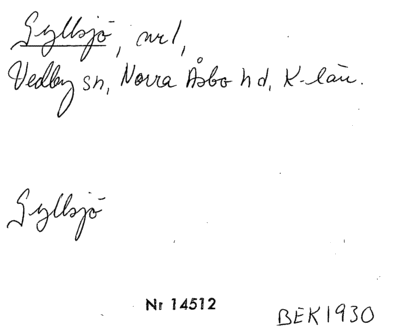 Gyllsjö, nr 1,
Vedby sn, Norra Åsbo hd, K-län.
Gyllsjö
Nr 14512
BEK 1930